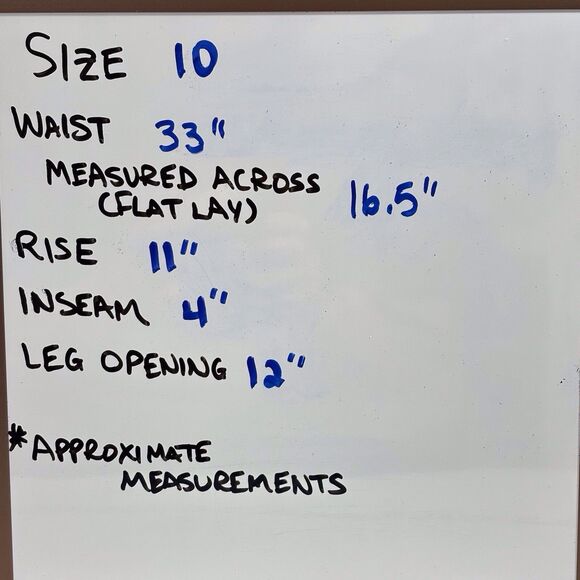 SIZE 10
WAIST 33"
MEASURED ACROSS
(FLAT LAY) 16.5"
RISE 11"
INSEAM 4"
LEG OPENING 12"
*APPROXIMATE
MEASUREMENTS